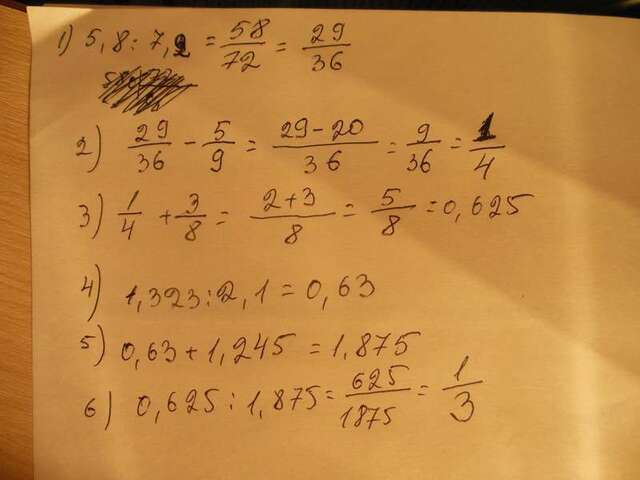 1) 5,8 : 7,2 = 58/72 = 29/36
2) 29/36 - 5/9 = 29-20/36 = 9/36 = 1/4
3) 1/4 + 3/8 = 2+3/8 = 5/8 = 0,625
4) 1,323 : 2,1 = 0,63
5) 0,63 + 1,245 = 1,875
6) 0,625 : 1,875 = 625/1875 = 1/3